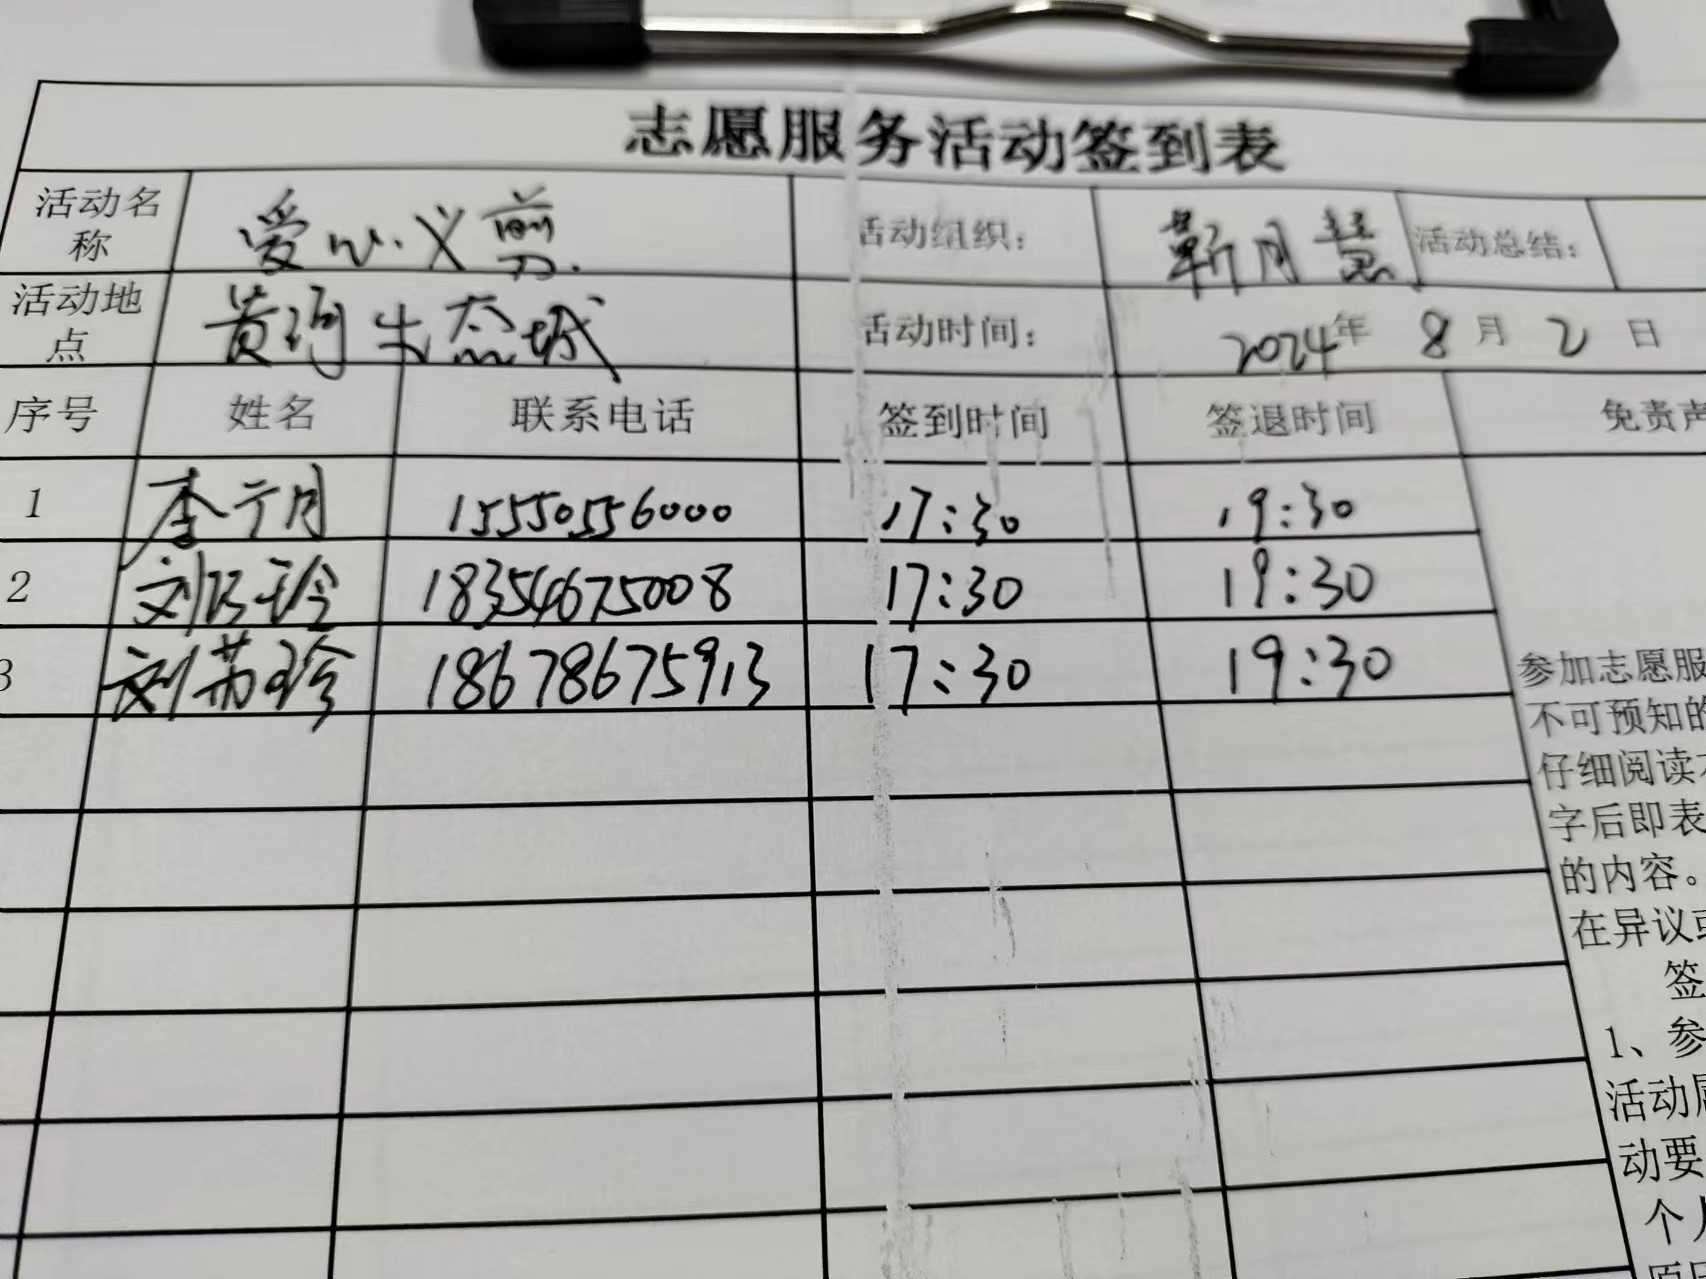 志愿服务活动签到表
活动名称 爱心义剪. 活动组织: 靳月慧 活动总结:
活动地点 黄河生态城 活动时间: 2024年 8月2日
序号 姓名 联系电话 签到时间 签退时间 免责声
1 李月 15550556000 17:30 19:30
2 刘玲 18354675008 17:30 19:30
3 刘珍 18678675913 17:30 19:30
参加志愿服
不可预知的
仔细阅读
字后即表
的内容。
在异议或
签
1、参
活动
动要
个
原因